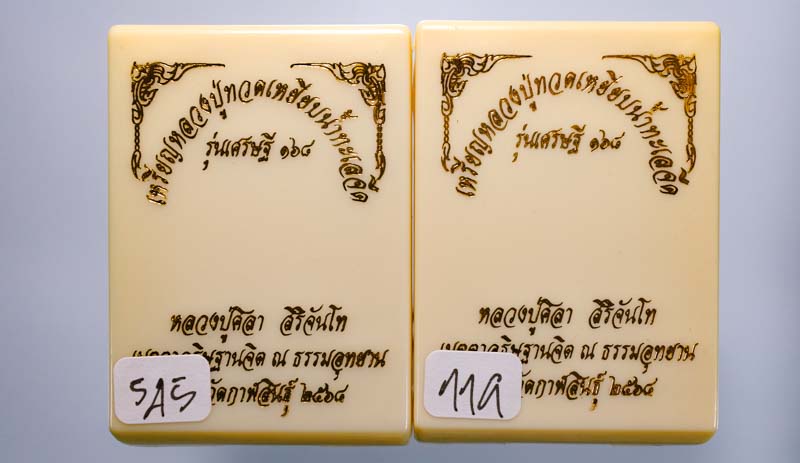 เหรียญหลวงปู่ทวดเหยียบน้ำทะเลจืด
รุ่นเศรษฐี ๑๖๘
หลวงปู่ศิลา สิริจันโท
ฐานจิต ณ ธรรมอุทยาน
กาฬสินธุ์ ๒๕๖๘
SAS
เหรียญหลวงปู่ทวดเหยียบน้ำทะเลจืด
รุ่นเศรษฐี ๑๖๘
หลวงปู่ศิลา สิริจันโท
ฐานจิต ณ ธรรมอุทยาน
กาฬสินธุ์ ๒๕๖๘